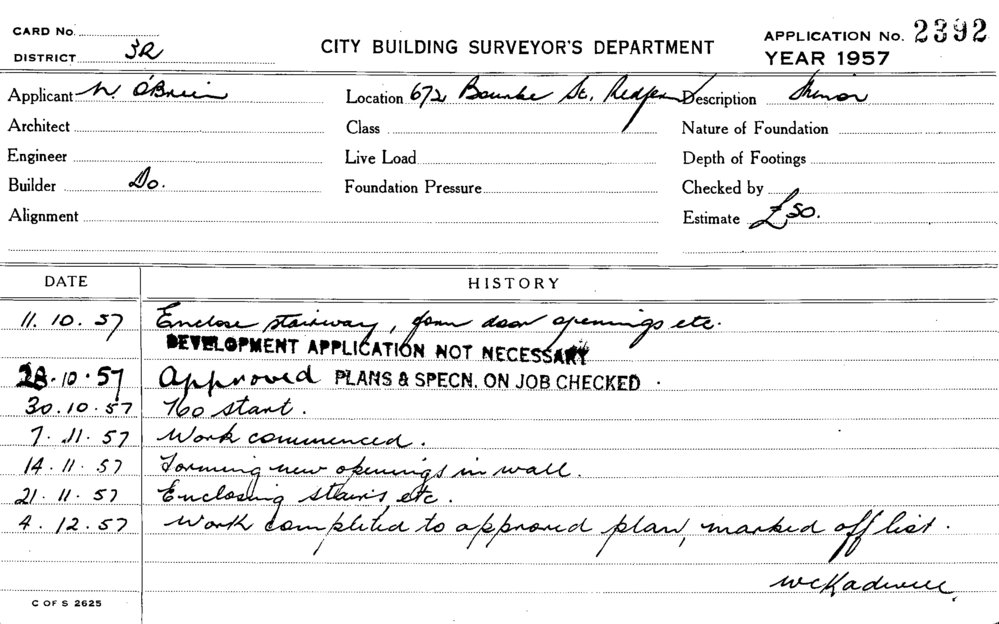 CARD No.
DISTRICT 3R
CITY BUILDING SURVEYOR'S DEPARTMENT
APPLICATION No. 2392
YEAR 1957
Applicant W. O'Brien Location 672 Bourke St. Redfern Description Minor
Architect Class Nature of Foundation
Engineer Live Load Depth of Footings
Builder Do. Foundation Pressure Checked by
Alignment Estimate £50.
DATE HISTORY
11. 10. 57 Enclose stairway, form door openings etc.
DEVELOPMENT APPLICATION NOT NECESSARY
28.10.57 Approved PLANS & SPECN. ON JOB CHECKED .
30.10.57 No start.
7. 11. 57 Work commenced.
14. 11. 57 Forming new openings in wall.
21. 11. 57 Enclosing stairs, etc.
4. 12. 57 Work completed to approved plan, marked off list.
C OF S 2625